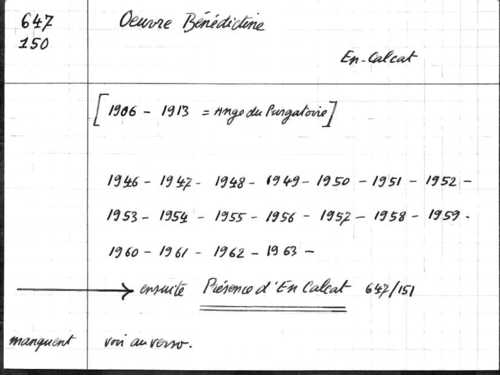 647 Oeuvre Bénédictine
150
En-Calcat
[1906 - 1913 = Ange du Purgatoire]
1946 - 1947 - 1948 - 1949 - 1950 - 1951 - 1952 -
1953 - 1954 - 1955 - 1956 - 1957 - 1958 - 1959 -
1960 - 1961 - 1962 - 1963 -
→ ensuite Présence d'En Calcat 647/151
manquent voir au verso.